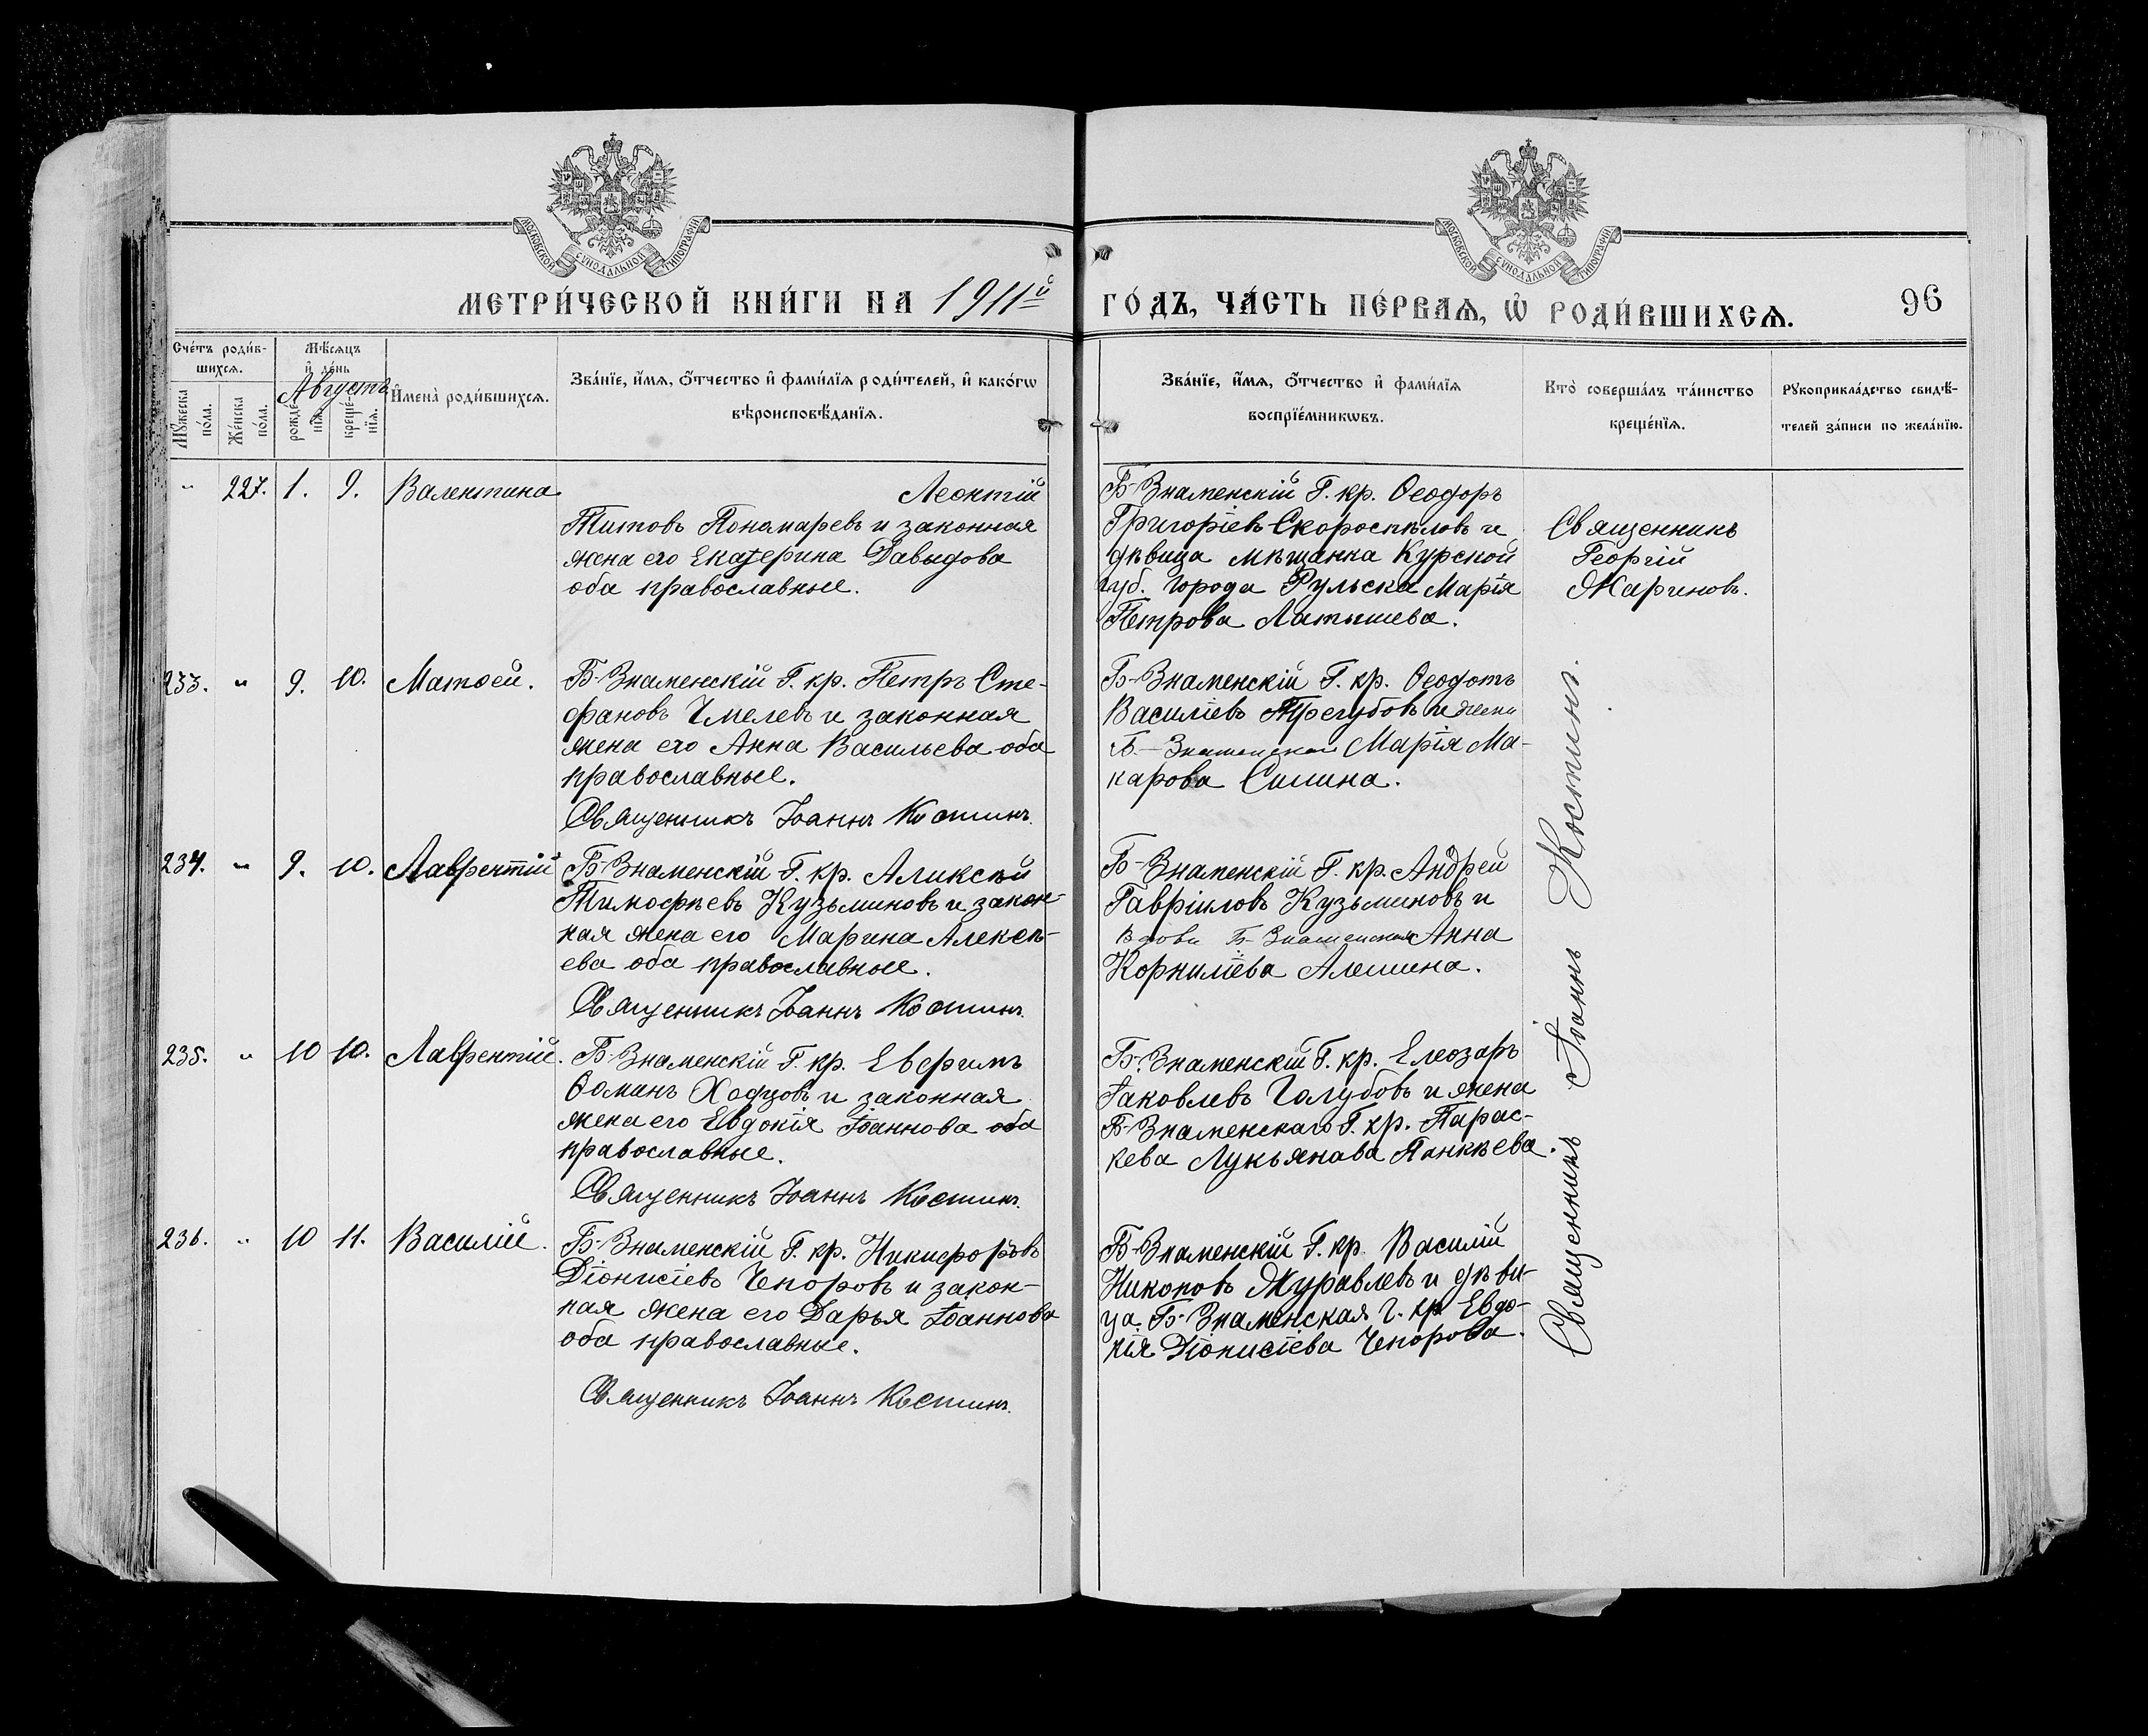 МОСКОВСКОЙ СУНОДАЛЬНОЙ ТИПОГРАФІИ
МОСКОВСКОЙ СУНОДАЛЬНОЙ ТИПОГРАФІИ
МЕТРИ́ЧЕСКОЙ КНИ́ГИ НА 1911й
ГО́ДЪ, ЧА́СТЬ ПЕ́РВАѦ, Ѡ҆ РОДИ́ВШИХСѦ.
96
Сче́тъ роди́в-
шихсѧ.
Мꙋ́жеска по́ла.
Же́нска по́ла.
Мѣ́сѧцъ
и҆ де́нь
Августъ
рожде́-нїѧ.
креще́-нїѧ.
И҆мена̀ роди́вшихсѧ.
Зва́нїе, и҆́мѧ, ѻ҆́тчество и҆ фами́лїѧ роди́телей, и҆ како́гѡ
вѣроисповѣ́данїѧ.
Зва́нїе, и҆́мѧ, ѻ҆́тчество и҆ фами́лїѧ
воспрїе́мникѡвъ.
Кто̀ соверша́лъ та́инство
креще́нїѧ.
Рꙋкоприкла́дство свидѣ́-
телей за́писи по жела́нїю.
" 227. 1. 9. Валентина
Леонтій
Титовъ Пономаревъ и законная
жена его Екатерина Давыдова
оба православные.
Б-Знаменскій Г. кр. Ѳеодоръ
Григоріевъ Скороспѣловъ и
дѣвица мѣщанка Курской
губ. города Рульска Марія
Петрова Латышева.
Священникъ
Георгій
Мариновъ.
233. " 9. 10. Матѳей.
Б-Знаменскій Г. кр. Петръ Сте-
фановъ Чмелевъ и законная
жена его Анна Васильева оба
православные.
Священникъ Іоаннъ Костинъ.
Б-Знаменскій Г. кр. Ѳеодотъ
Василіевъ Трегубовъ и жена
Б.-Знаменской Марія Ма-
карова Силина.
234. " 9. 10. Лаврентій
Б-Знаменскій Г. кр. Алексѣй
Тимофѣевъ Кузьминовъ и закон-
ная жена его Марина Алексѣ-
ева оба православные.
Священникъ Іоаннъ Костинъ.
Б-Знаменскій Г. кр. Андрей
Гавріиловъ Кузьминовъ и
вдова Б-Знаменская Анна
Корниліева Алешина.
235. " 10 10. Лаврентій.
Б-Знаменскій Г. кр. Евфримъ
Ѳоминъ Ходцовъ и законная
жена его Евдокія Іоаннова оба
православные.
Священникъ Іоаннъ Костинъ.
Б-Знаменскій Г. кр. Елеозаръ
Іаковлевъ Голубовъ и жена
Б-Знаменскаго Г. кр. Парас-
кева Лукьянова Панкѣева.
236. " 10 11. Василій.
Б-Знаменскій Г. кр. Никифоръ
Діонисіевъ Чепоровъ и закон-
ная жена его Дарья Іоаннова
оба православные.
Священникъ Іоаннъ Костинъ.
Б-Знаменскій Г. кр. Василій
Никоновъ Журавлевъ и дѣви-
ца Б-Знаменская Г. кр Евдо-
кія Діонисіева Чепорова.
Священникъ Іоаннъ Костинъ.